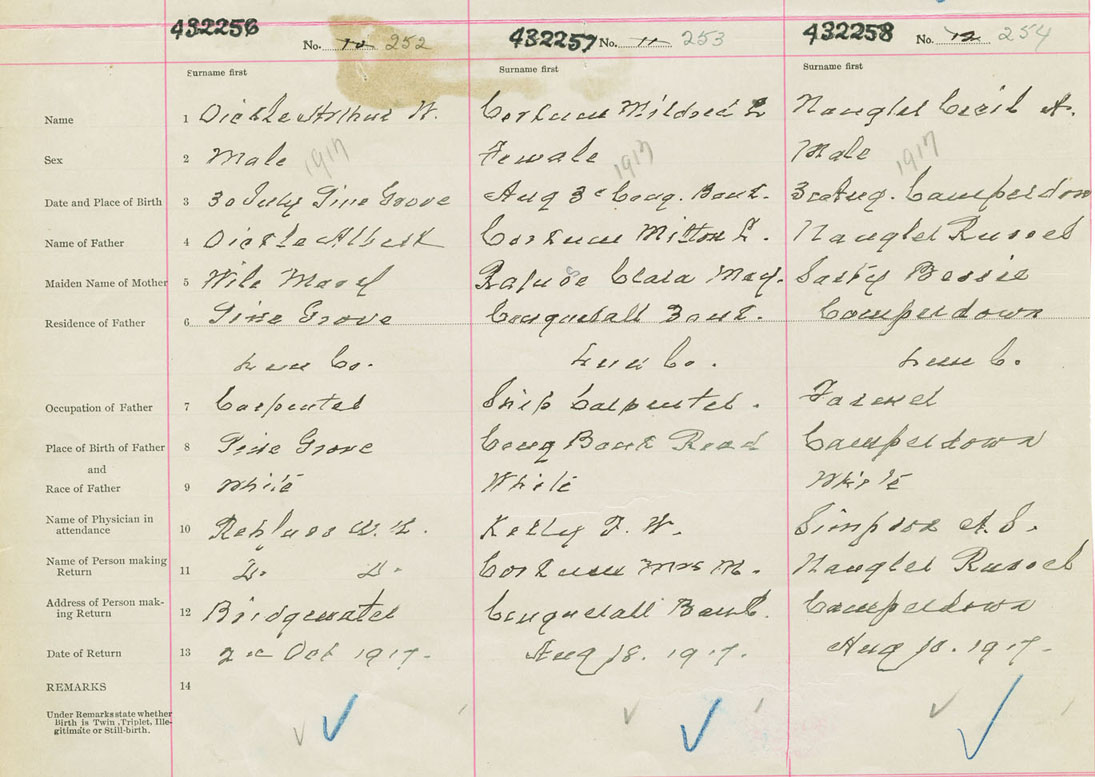 432256 No. 10 252 432257 No. 11 253 432258 No. 12 254
Surname first Surname first Surname first
Name 1 Dickie Arthur W. Corkum Mildred L Naugler Cecil A.
1917 1917 1917
Sex 2 Male Female Male
Date and Place of Birth 3 30 July Pine Grove Aug 3 Conq. Bank. Aug. Camperdown
Name of Father 4 Dickie Albert Corkum Milton L. Naugler Russel
Maiden Name of Mother 5 Wile Mary Rafuse Clara May. Bessie
Residence of Father 6 Pine Grove Conquerall Bank. Camperdown
Lun Co. Lun Co. Lun C.
Occupation of Father 7 Carpenter Ship Carpenter. Farmer
Place of Birth of Father 8 Pine Grove Conq Bank Road Camperdown
and
Race of Father 9 White White White
Name of Physician in
attendance 10 Kelly F. W. Simpson A. S.
Name of Person making
Return 11 Corkum Mrs M. Naugler Russel
Address of Person mak-
ing Return 12 Bridgewater Conquerall Bank. Camperdown
Date of Return 13 Oct 1917. Aug 18. 1917. Aug 1917.
REMARKS 14
Under Remarks state whether
Birth is Twin, Triplet, Ille-
gitimate or Still-birth.